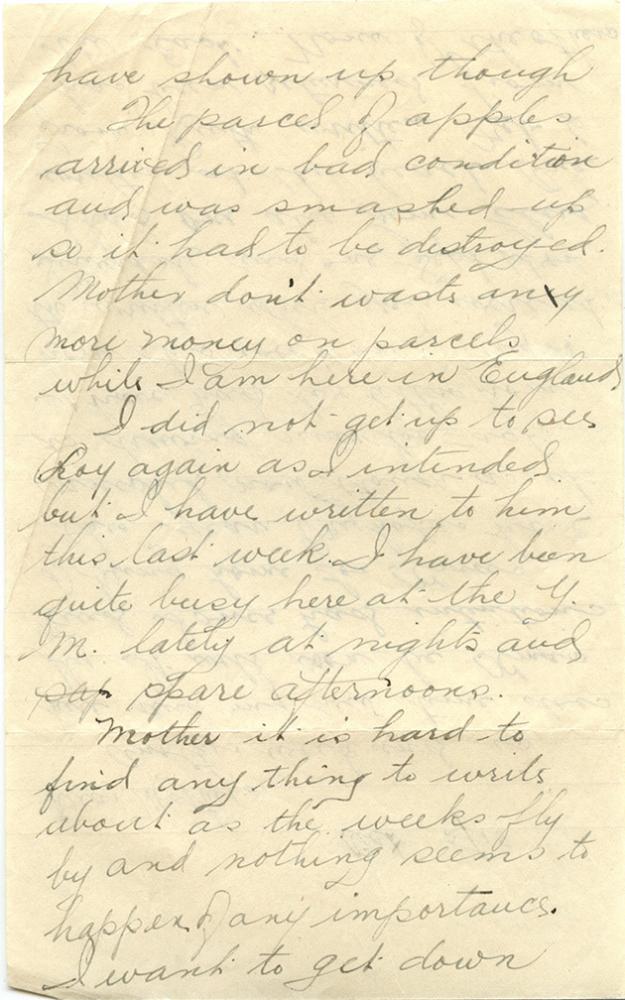 have shown up though
The parcel of apples
arrived in bad condition
and was smashed up
so it had to be destroyed.
Mother don't waste any
more money on parcels
while I am here in England
I did not get up to see
Roy again as I intended
but I have written to him
this last week. I have been
quite busy here at the Y.
M. lately at nights and
sap spare afternoons.
Mother it is hard to
find any thing to write
about as the weeks fly
by and nothing seems to
happen of any importance.
I want to get down